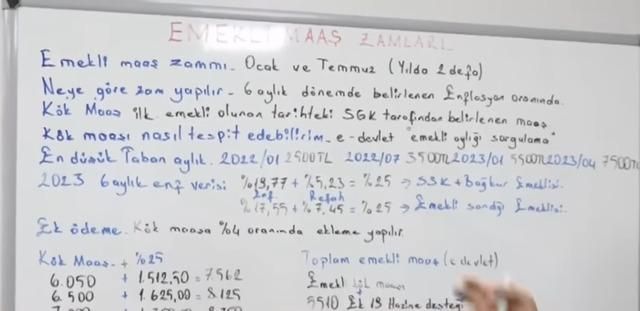 EMEKLİ MAAŞ ZAMLARI
Emekli maaş zammı - Ocak ve Temmuz (Yılda 2 defa)
Neye göre zam yapılır - 6 aylık dönemde belirlenen Enflasyon oranında.
Kök Maaş ilk emekli olunan tarihteki SGK tarafından belirlenen maaş
Kök maaşı nasıl tespit edebilirim - e-devlet "emekli aylığı sorgulama"
En düşük Taban aylık. 2022/01 2500TL 2022/07 3500TL 2023/01 5500TL 2023/04 7500TL
2023 6 aylık enf verisi %19,77 + %5,23 = %25 → SSK + Bağkur Emeklisi.
Enf Refah
%17,55 + %7,45 = %25 → Emekli sandığı Emeklisi.
Ek ödeme. Kök maaşa %4 oranında ekleme yapılır.
Kök Maaş + %25 Toplam emekli maaş (e devlet)
6.050 + 1.512,50 = 7562 Emekli kök maaşı
6.500 + 1.625,00 = 8.125 5510 Ek 19 Hazine desteği